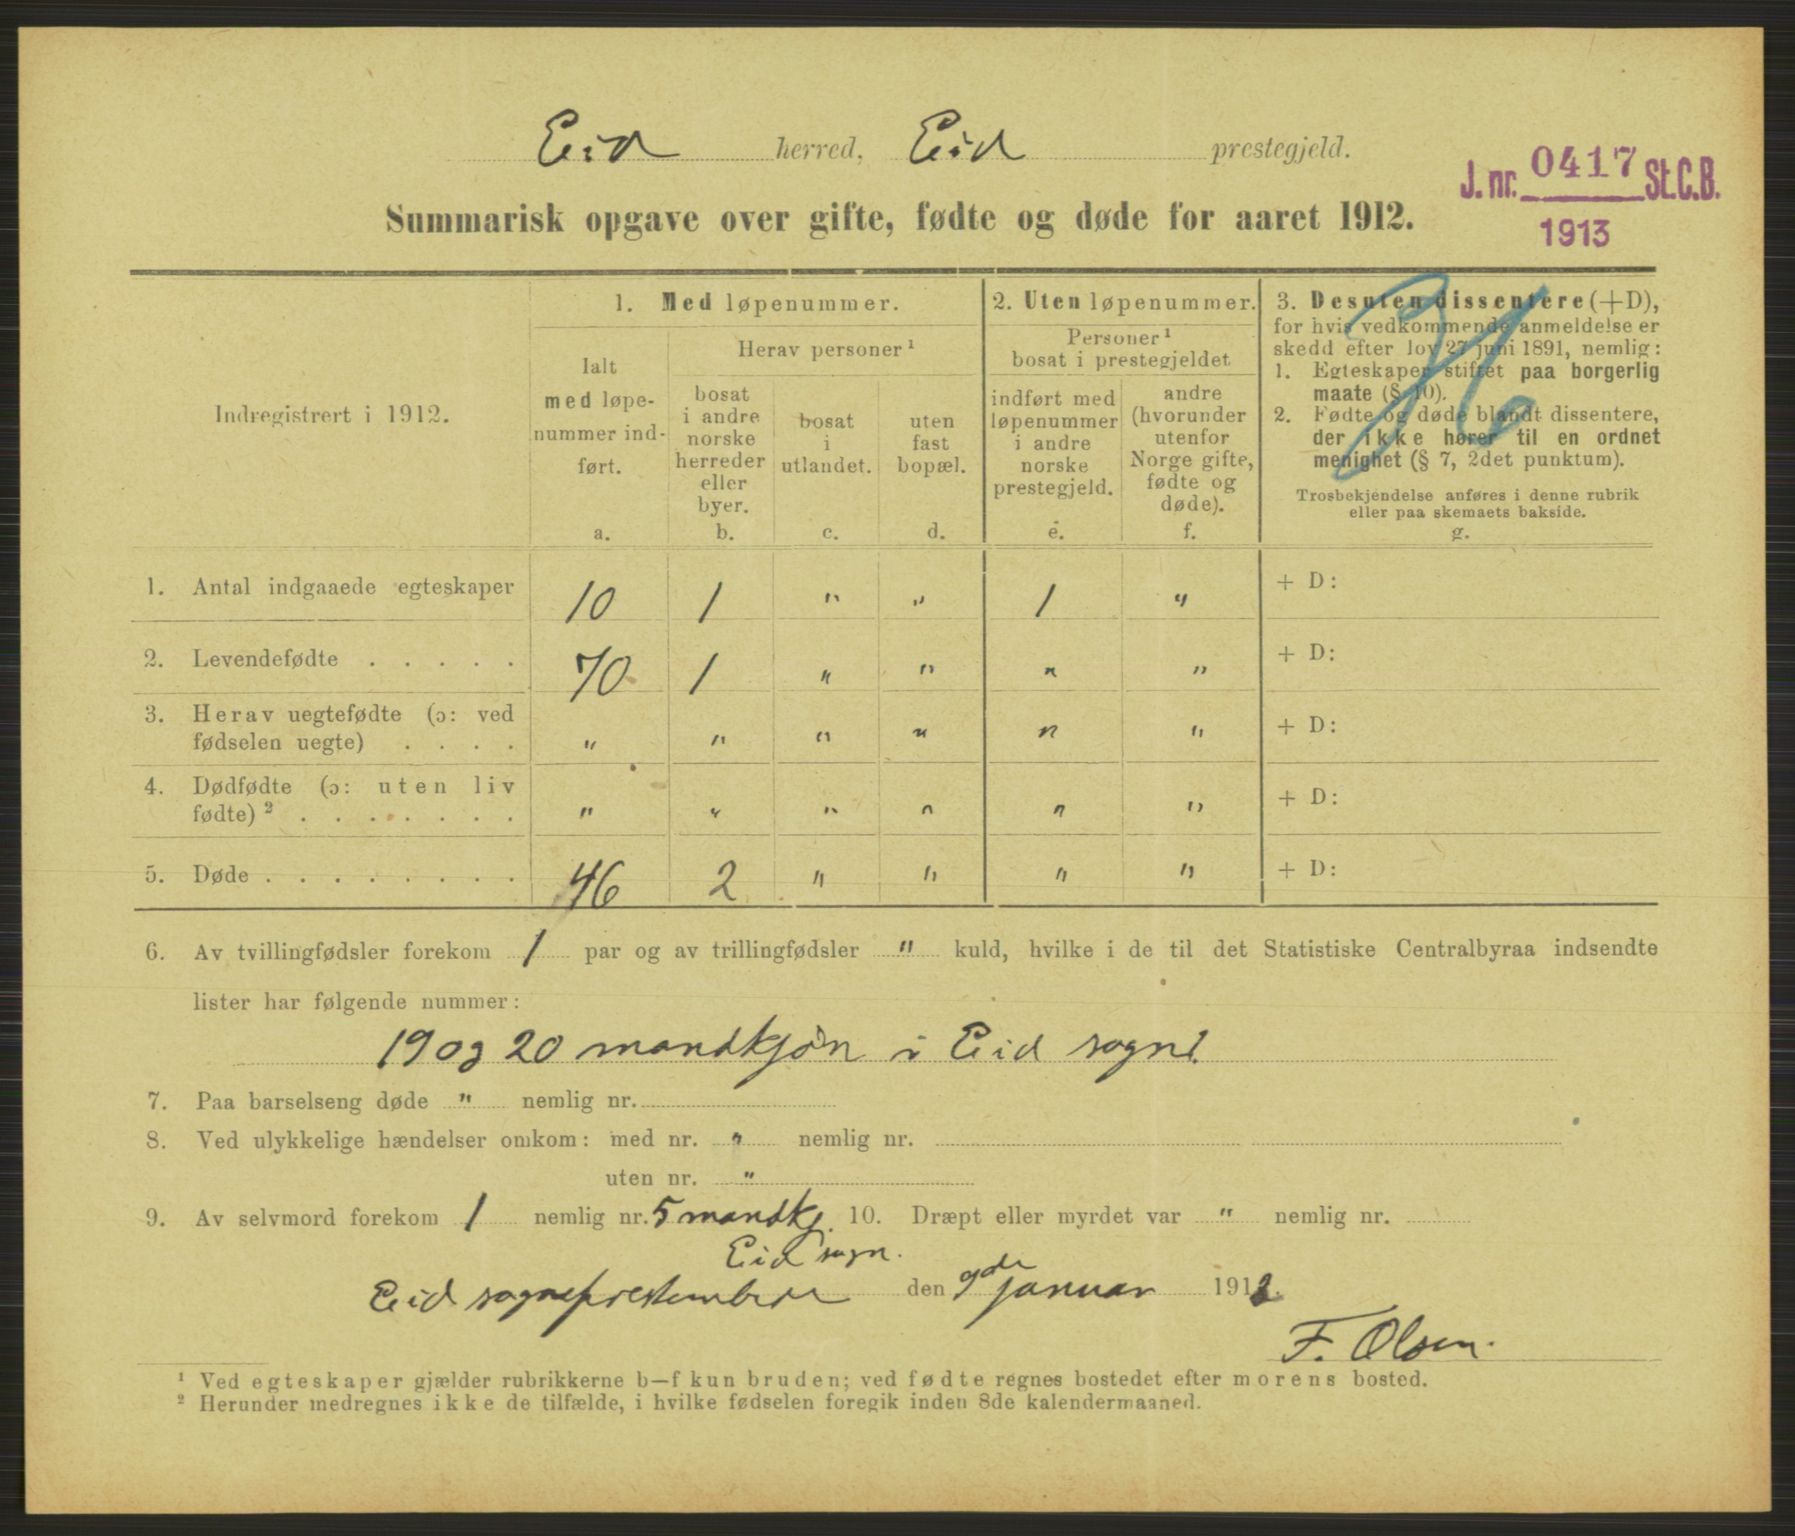 Eid herred, Eid prestegjeld.
J. nr. 0417 St.C.B.
1913
Summarisk opgave over gifte, fødte og døde for aaret 1912.
Indregistrert i 1912.
1. Med løpenummer.
Ialt
med løpe-
nummer ind-
ført.
a.
Herav personer ¹
bosat
i andre
norske
herreder
eller
byer.
b.
bosat
i
utlandet.
c.
uten
fast
bopæl.
d.
2. Uten løpenummer.
Personer ¹
bosat i prestegjeldet
indført med
løpenummer
i andre
norske
prestegjeld.
e.
andre
(hvorunder
utenfor
Norge gifte,
fødte og
døde).
f.
3. Desuten dissentere (+D),
for hvis vedkommende anmeldelse er
skedd efter lov 27 juni 1891, nemlig:
1. Egteskaper stiftet paa borgerlig
maate (§ 10).
2. Fødte og døde blandt dissentere,
der ikke hører til en ordnet
menighet (§ 7, 2det punktum).
Trosbekjendelse anføres i denne rubrik
eller paa skemaets bakside.
g.
1. Antal indgaaede egteskaper 10 1 " " 1 " + D:
2. Levendefødte . . . . . 70 1 " " " " + D:
3. Herav uegtefødte (ɔ: ved
fødselen uegte) . . . . " " " " " " + D:
4. Dødfødte (ɔ: uten liv
fødte) ² . . . . . . . " " " " " " + D:
5. Døde . . . . . . . . 46 2 " " " " + D:
6. Av tvillingfødsler forekom 1 par og av trillingfødsler " kuld, hvilke i de til det Statistiske Centralbyraa indsendte
lister har følgende nummer:
19 og 20 mandkjøn i Eid sogn.
7. Paa barselseng døde " nemlig nr.
8. Ved ulykkelige hændelser omkom: med nr. " nemlig nr.
uten nr. "
9. Av selvmord forekom 1 nemlig nr. 5 mandkj. 10. Dræpt eller myrdet var " nemlig nr.
Eid sogn.
Eid sogneprestembede den 9de januar 1913.
F. Olsen.
¹ Ved egteskaper gjælder rubrikkerne b—f kun bruden; ved fødte regnes bostedet efter morens bosted.
² Herunder medregnes ikke de tilfælde, i hvilke fødselen foregik inden 8de kalendermaaned.